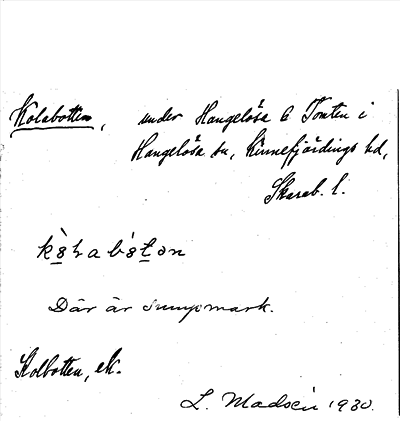 Kolabotten, under Hangelösa 6 Tomten i
Hangelösa sn, Kinnefjärdings hd,
Skarab. l.
kò̲ɽabó̲t̲ən
Där är sumpmark.
Kolbotten, ek.
L. Madsén 1930.